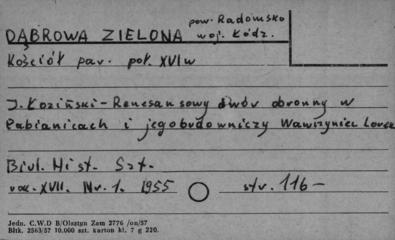 pow. Radomsko
DĄBROWA ZIELONA woj. Łódz.
Kościół par. poł. XVI w
J. Łoziński - Renesansowy dwór obronny w
Pabianicach i jego budowniczy Wawrzyniec Lorek
Biul. Hist. Szt.
rok. XVII. Nr. 1. 1955 str. 116-
Jedn. C.W.D B/Olsztyn Zam 2776 /on/57
Bltk. 2563/57 10.000 szt. karton kl. 7 g 220.